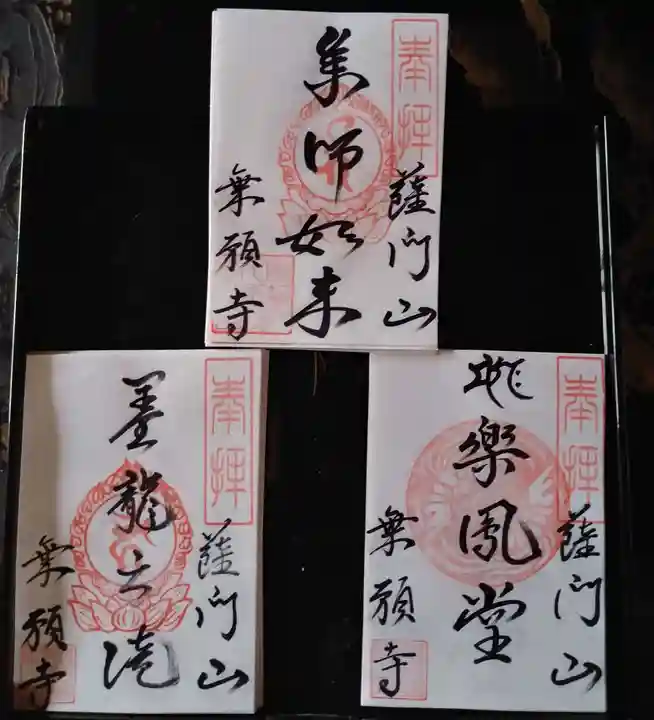 奉拝
薩門山
薬師如来
願寺
奉拝
薩門山
墨龍之滝
願寺
奉拝
薩門山
眺楽鳳堂
願寺